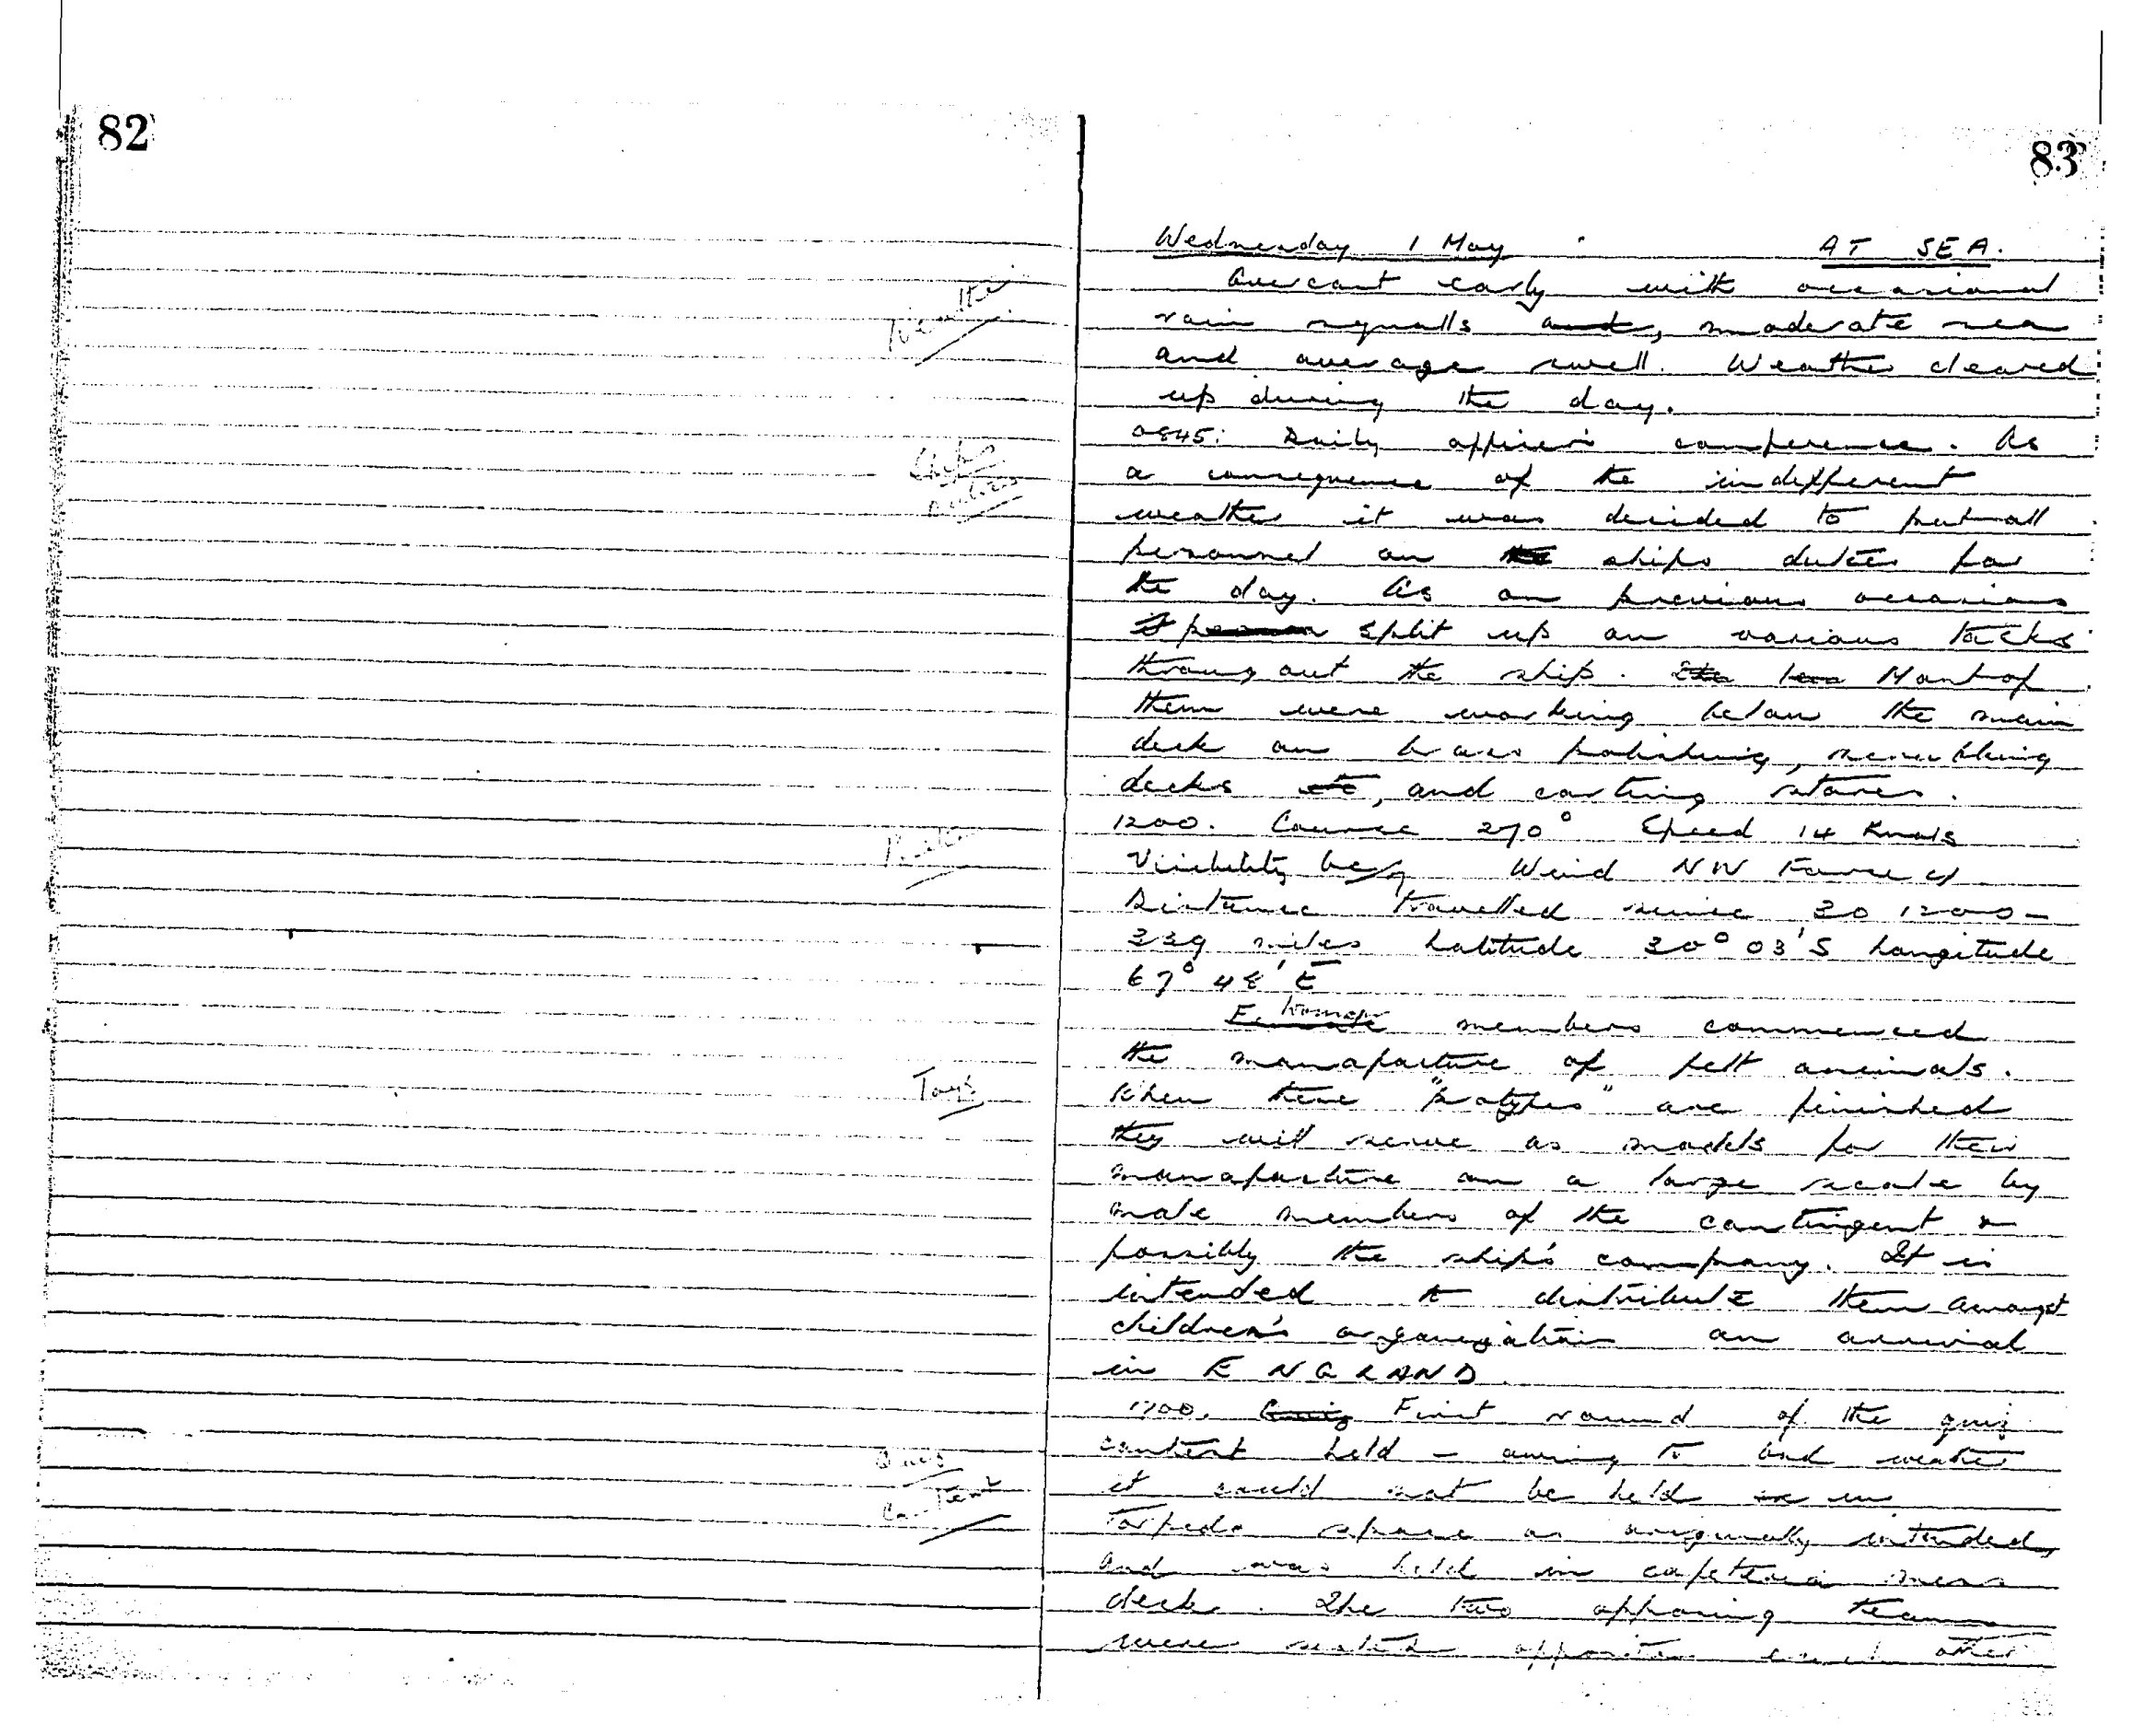 82
83
Wednesday 1 May AT SEA.
Weather
Overcast early with occasional
rain squalls and, moderate sea
and average swell. Weather cleared
up during the day.
0845: Daily officers conference. As
Ships
duties
a consequence of the indifferent
weather it was decided to put all
personnel on the ships duties for
the day. As on previous occasions
split up on various tacks
throug out the ship. The Most of
them were working below the main
deck on brass polishing, scrubbing
decks etc, and carting stores.
1200. Course 270° Speed 14 Knots
Visibility Wind NW Force
Distance travelled since 30 1200 -
339 miles Latitude 30° 03' S Longitude
67° 48' E
Female Women members commenced
the manufacture of felt animals.
Toys
When these "protypes" are finished
they will serve as models for their
manufacture on a large scale by
male members of the contingent &
possibly the ship's company. It is
intended to distribute them amongst
children's organization on arrival
in ENGLAND.
1700. Quiz First round of the quiz
Quiz
Contest
contest held - owing to bad weather
it could not be held in
Torpedo space as originally intended,
and was held in cafeteria mess
deck. The two opposing teams
were seated opposite each other